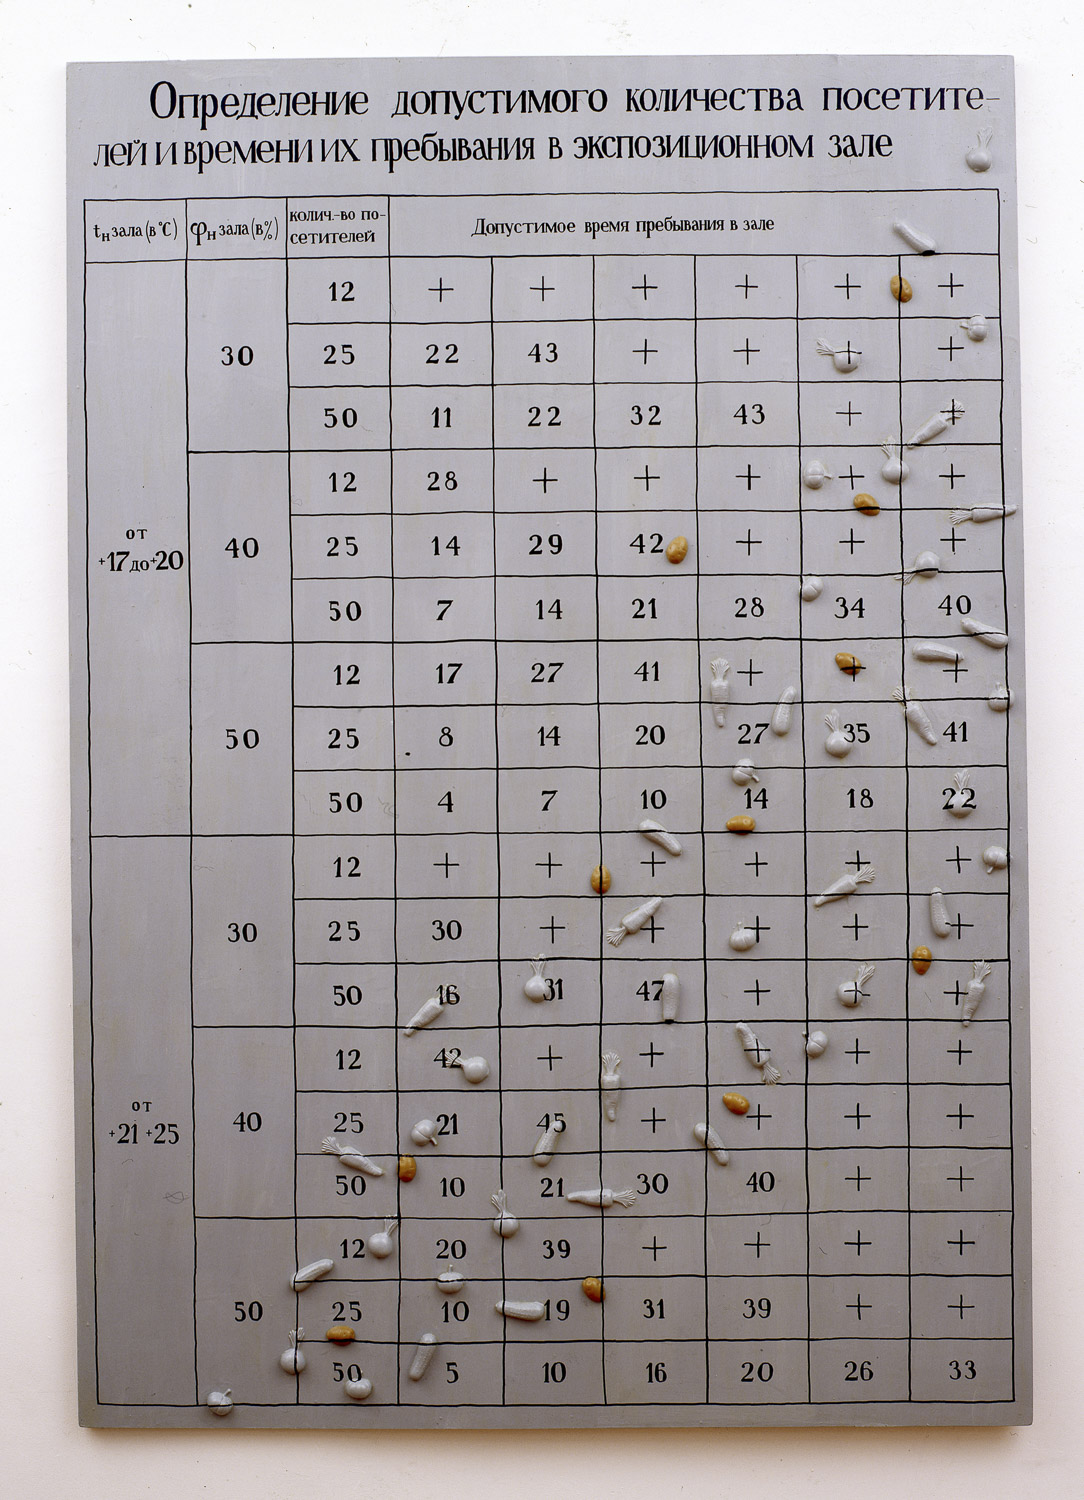 Определение допустимого количества посетите-
лей и времени их пребывания в экспозиционном зале
tн зала (в °C) φн зала (в %) колич.-во по- Допустимое время пребывания в зале
сетителей
12 + + + + + +
30 25 22 43 + + + +
50 11 22 32 43 + +
12 28 + + + + +
от
+17 до +20 40 25 14 29 42 + + +
50 7 14 21 28 34 40
12 17 27 41 + + +
50 25 8 14 20 27 35 41
50 4 7 10 14 18 22
12 + + + + + +
30 25 30 + + + + +
50 16 31 47 + + +
12 42 + + + + +
от
+21 +25 40 25 21 45 + + + +
50 10 21 30 40 + +
12 20 39 + + + +
50 25 10 19 31 39 + +
50 5 10 16 20 26 33